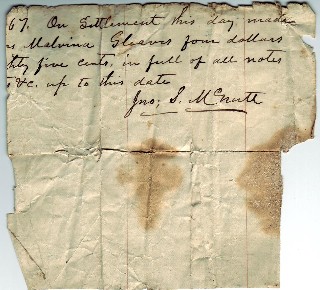 67. On Settlement this day made
Melvina Gleaves four dollars
ty five cents, in full of all notes
&c. up to this date
Jno. S. McNutt